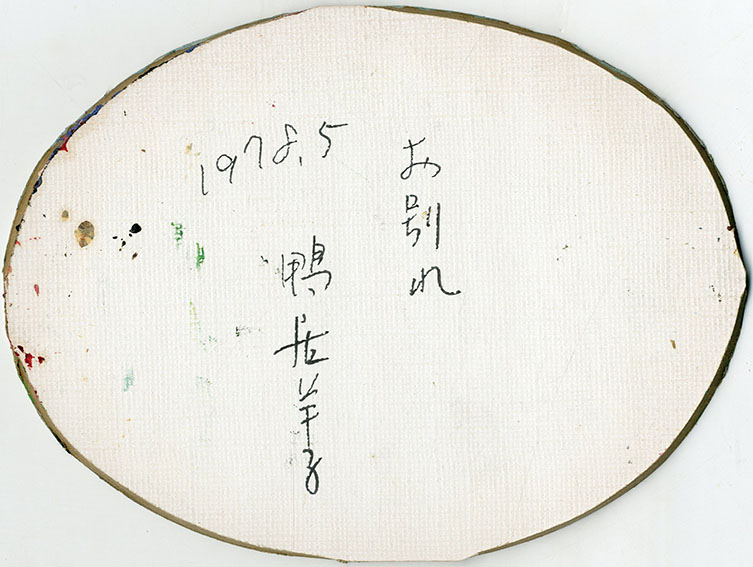 お別れ
1978.5
鴨居羊子